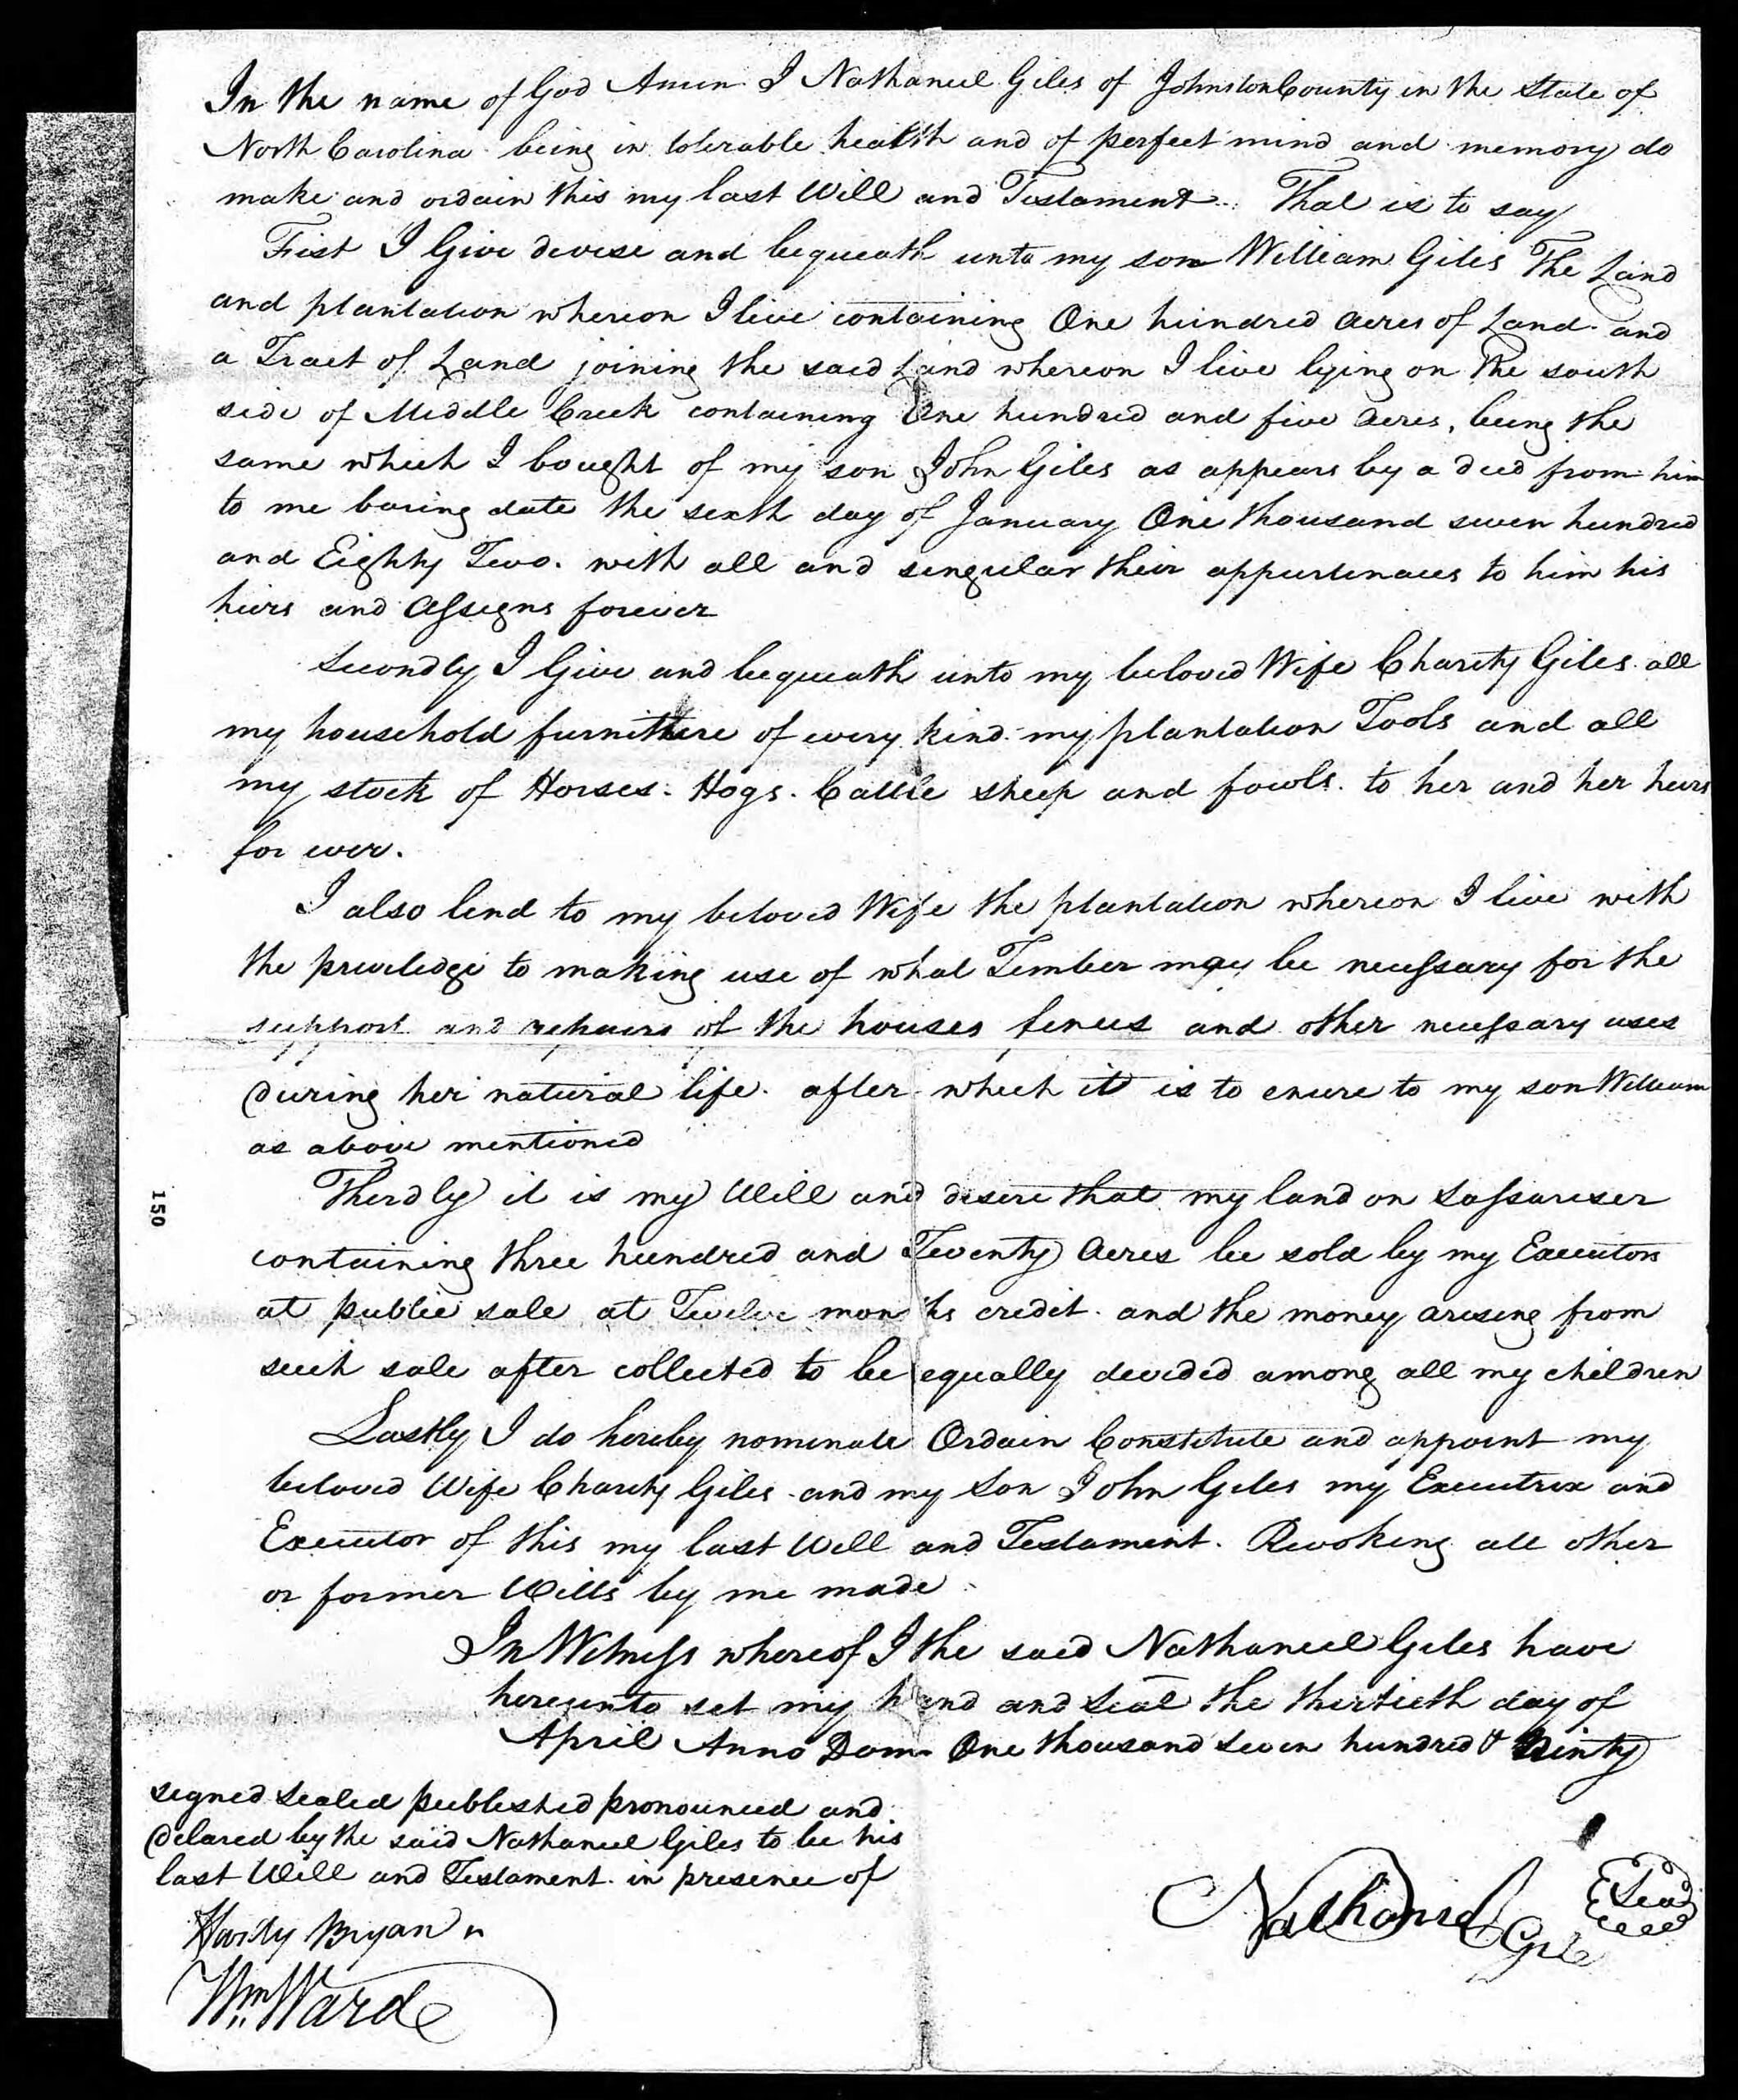 In the name of God Amen I Nathaneel Giles of Johnston County in the State of
North Carolina being in tolerable health and of perfect mind and memory do
make and ordain this my last Will and Testament. That is to say
First I Give devise and bequeath unto my son William Giles The Land
and plantation whereon I live containing One hundred acres of Land and
a Tract of Land joining the said Land whereon I live lying on the south
side of Middle Creek containing One hundred and five acres, being the
same which I bought of my son John Giles as appears by a deed from him
to me baring date the sixth day of January One thousand seven hundred
and Eighty Two. with all and singular their appurtenaces to him his
heirs and Assigns forever
Secondly I Give and bequeath unto my beloved Wife Charity Giles all
my household furniture of every kind my plantation Tools and all
my stock of Horses. Hogs. Cattle sheep and fowls. to her and her heirs
for ever.
I also lend to my beloved Wife the plantation whereon I live with
the priviledge to making use of what Timber may be necessary for the
support and repairs of the houses fences and other necessary uses
during her natural life. after which it is to enure to my son William
as above mentioned
Thirdly it is my Will and desire that my land on Sassariser
containing three hundred and Twenty acres be sold by my Executors
at public sale at Twelve months credit. and the money arising from
such sale after collected to be equally devided among all my children
Lastly I do hereby nominate Ordain Constitute and appoint my
beloved Wife Charity Giles and my Son John Giles my Executrix and
Executor of this my last Will and Testament. Revoking all other
or former Wills by me made
In Witness whereof I the said Nathaneel Giles have
hereunto set my hand and Seal the thirtieth day of
April Anno Dom One thousand Seven hundred & Ninty
signed sealed published pronounced and
delared by the said Nathaneel Giles to be his
last Will and Testament. in presence of
Nathaniel Gile
Seal
Hardy Bryan
Wm Ward
150